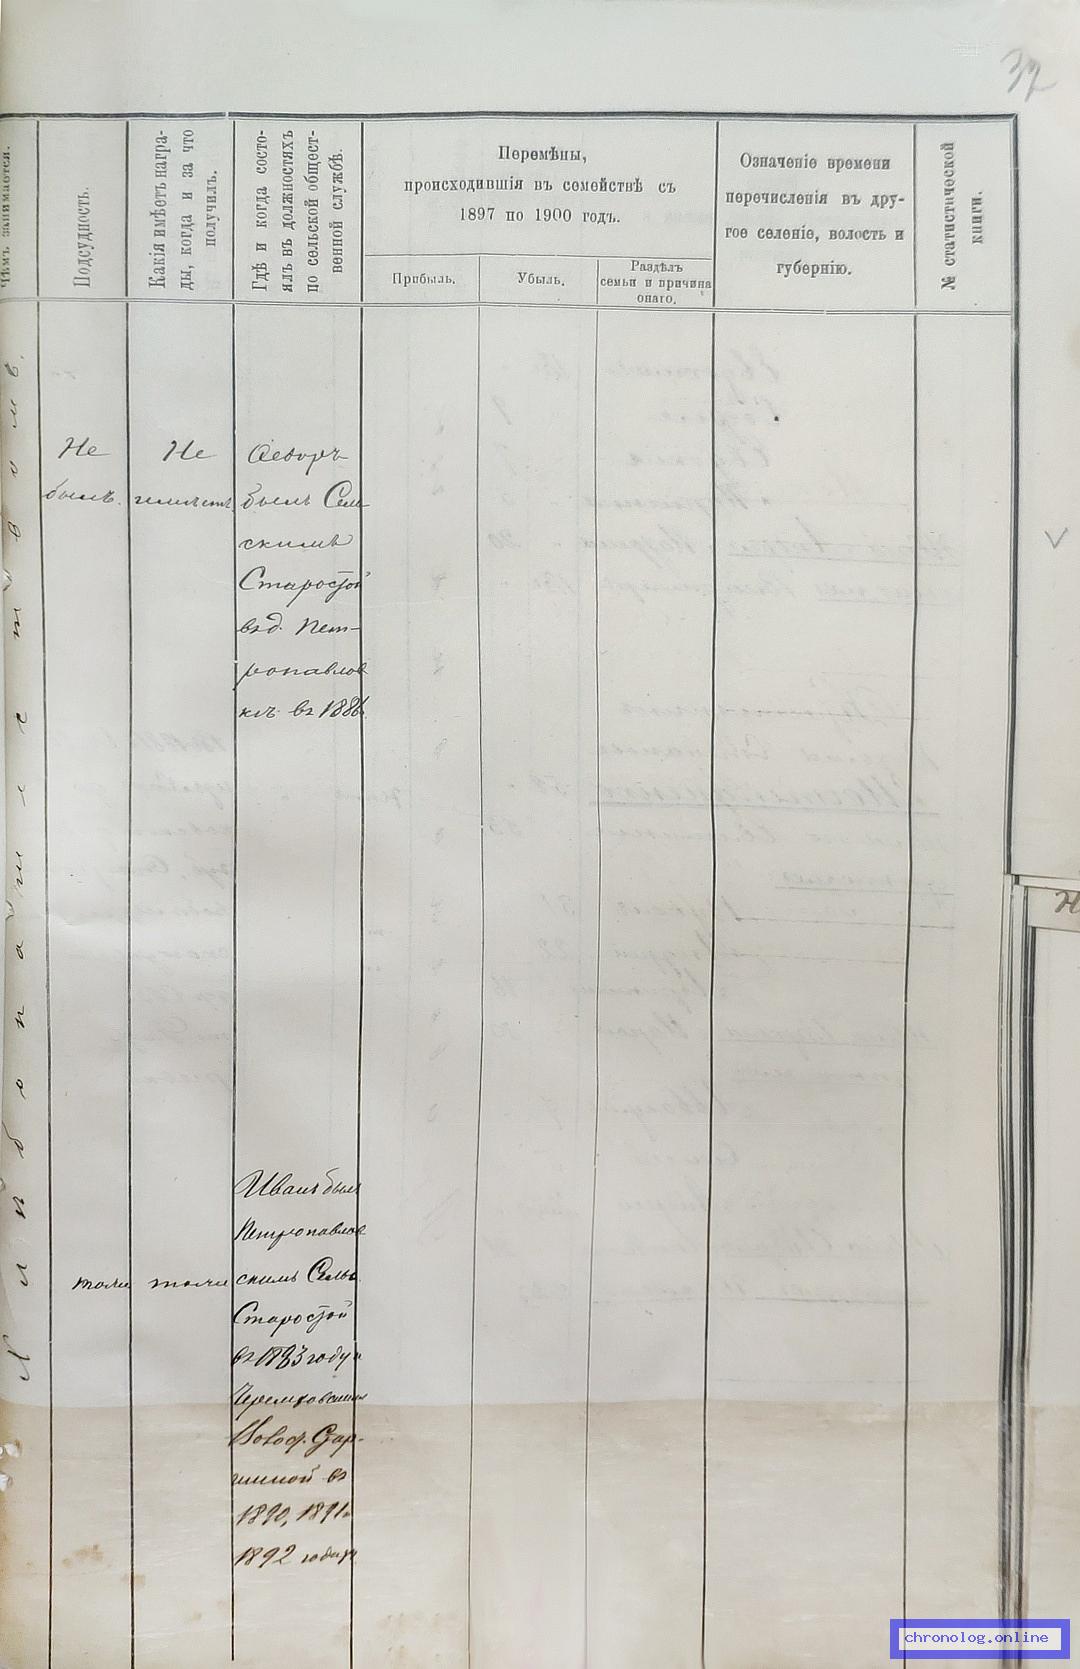 37
Чѣмъ занимается.
Подсудность.
Какія имѣетъ награ-
ды, когда и за что
получилъ.
Гдѣ и когда состо-
ялъ въ должностяхъ
по сельской общест-
венной службѣ.
Перемѣны,
происходившія въ семействѣ съ
1897 по 1900 годъ.
Прибыль.
Убыль.
Раздѣлъ
семьи и причина
онаго.
Означеніе времени
перечисленія въ дру-
гое селеніе, волость и
губернію.
№ статистической
книги.
Хлѣбопашествомъ.
Не
былъ.
Не
имѣетъ
Ѳедоръ
былъ Сель
скимъ
Старостой
въ д. Пет-
ропавлов
кѣ въ 1886
тоже
тоже
Иванъ былъ
Петропавлов
скимъ Сельс.
Старостой
въ 1883 году и
Черемховскимъ
Волос. Стар-
шиной въ
1890, 1891 и
1892 годахъ
chronolog.online